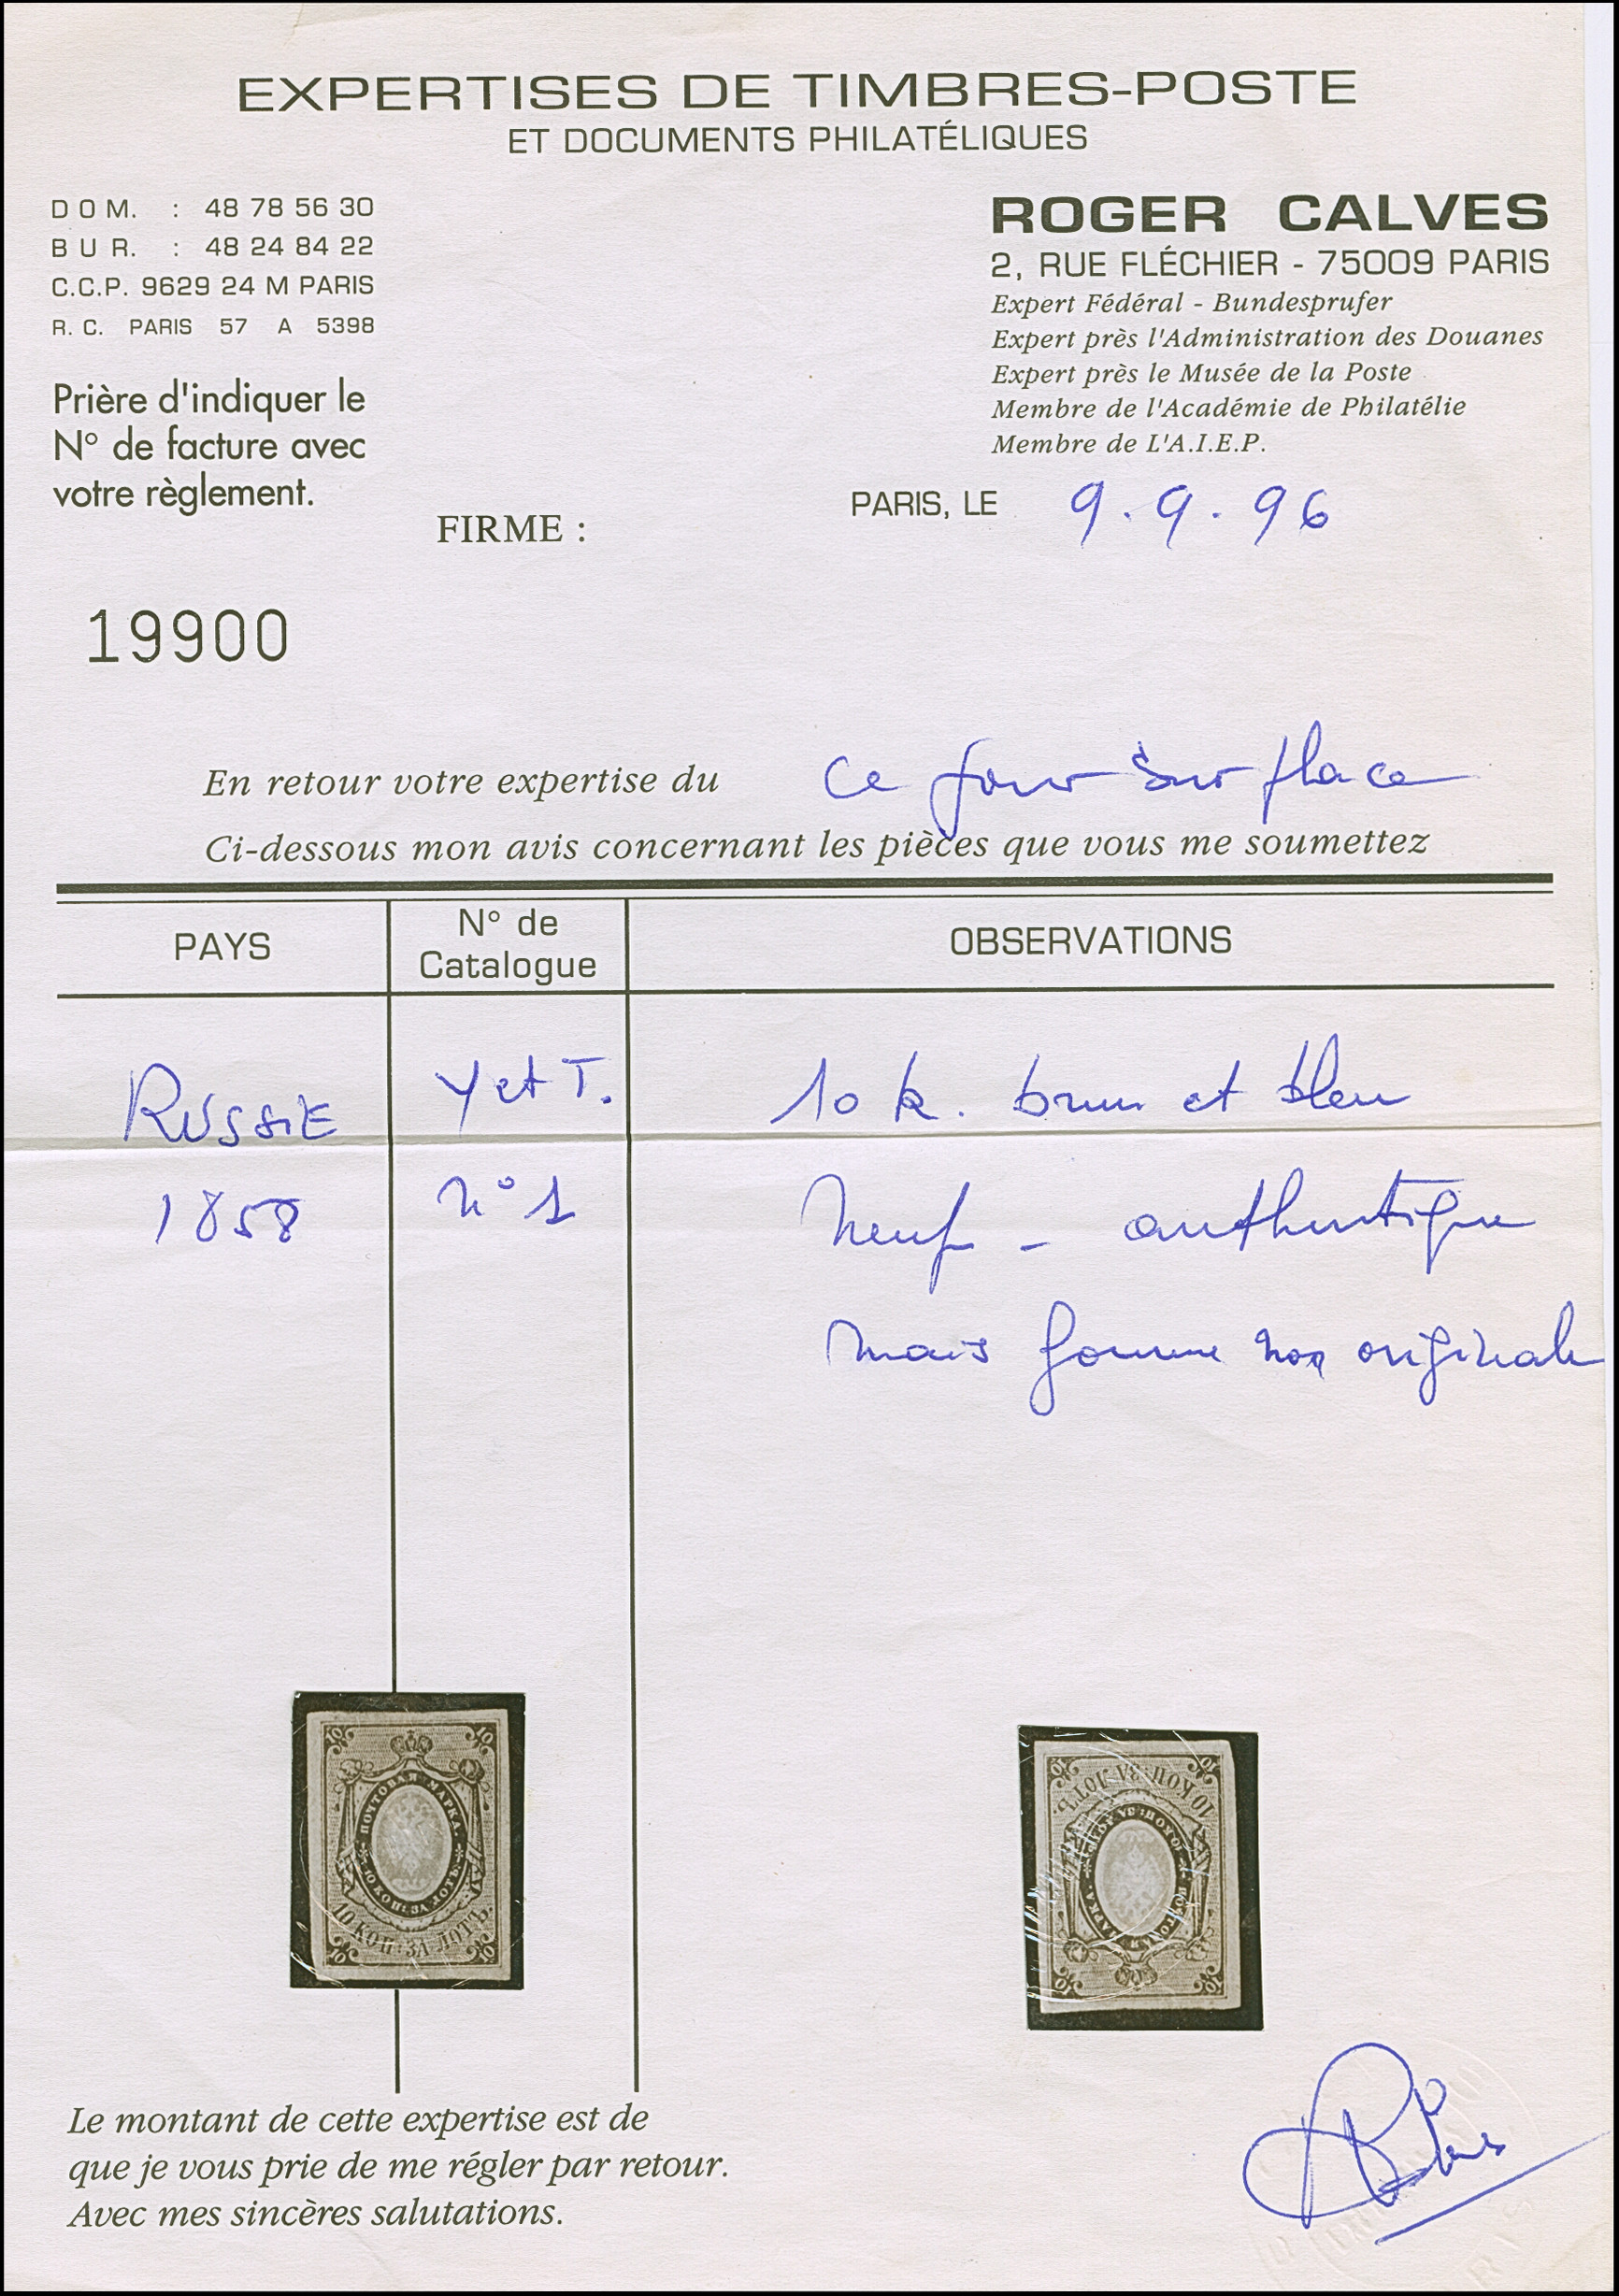 EXPERTISES DE TIMBRES-POSTE
ET DOCUMENTS PHILATÉLIQUES
DOM. : 48 78 56 30
BUR. : 48 24 84 22
C.C.P. 9629 24 M PARIS
R.C. PARIS 57 A 5398
Prière d'indiquer le
N° de facture avec
votre règlement.
ROGER CALVES
2, RUE FLÉCHIER - 75009 PARIS
Expert Fédéral - Bundesprufer
Expert près l'Administration des Douanes
Expert près le Musée de la Poste
Membre de l'Académie de Philatélie
Membre de L'A.I.E.P.
PARIS, LE 9.9.96
FIRME :
19900
En retour votre expertise du ce jour sur place
Ci-dessous mon avis concernant les pièces que vous me soumettez
PAYS
N° de
Catalogue
OBSERVATIONS
RUSSIE Y et T. 10 k. brun et bleu
1858 n° 1 Neuf - authentique
mais gomme non originale
10 10
ПОЧТОВАЯ МАРКА.
10 КОП: ЗА ЛОТЪ.
10 КОП: ЗА ЛОТЪ.
10 10
10 КОП: ЗА ЛОТЪ.
10 КОП: ЗА ЛОТЪ.
ПОЧТОВАЯ МАРКА.
10 10
Le montant de cette expertise est de
que je vous prie de me régler par retour.
Avec mes sincères salutations.